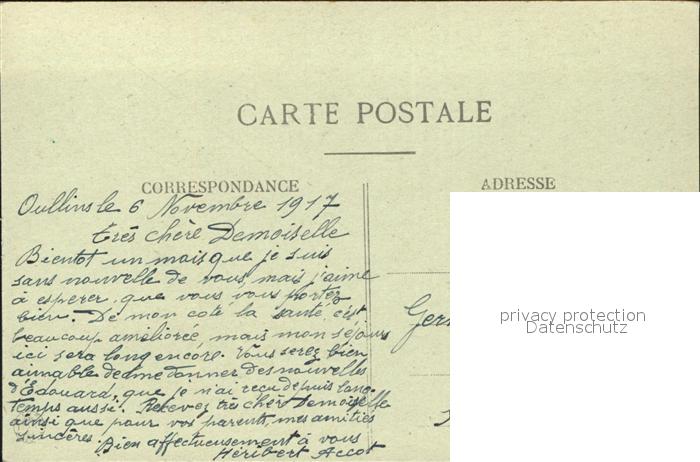 CARTE POSTALE
CORRESPONDANCE
ADRESSE
Oullins le 6 Novembre 1917
très chère Demoiselle
Bientot un mois que je suis
sans nouvelle de vous, mais j'aime
à esperer, que vous vous portez
bien. De mon coté la santé, c'est
beaucoup améliorée, mais mon séjours
ici sera long encore. Vous serez bien
aimable de me donner des nouvelles
d'Edouard, que je n'ai reçu depuis long-
temps aussi. Recevez très chère Demoiselle
ainsi que pour vos parents, mes amitiés
sincères. Bien affectueusement à vous
Héribert Accot
Ger
privacy protection
Datenschutz